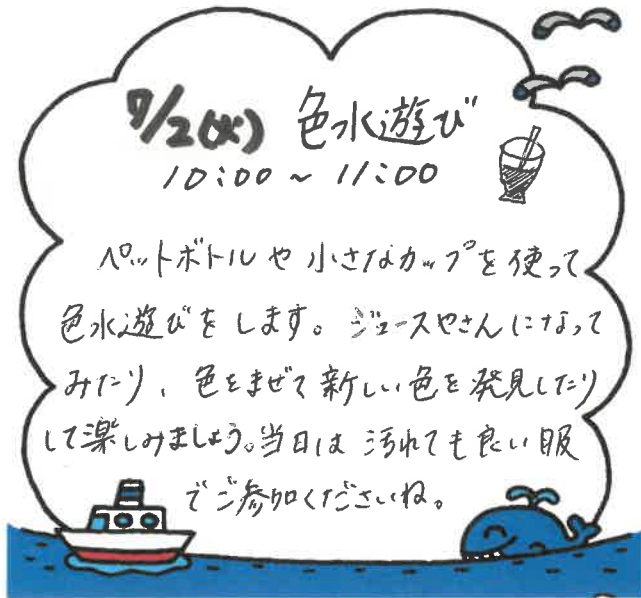 7/2(火) 色水遊び
10:00～11:00
ペットボトルや小さなカップを使って
色水遊びをします。ジュースやさんになって
みたり、色をまぜて新しい色を発見したり
して楽しみましょう。当日は汚れても良い服
でご参加くださいね。